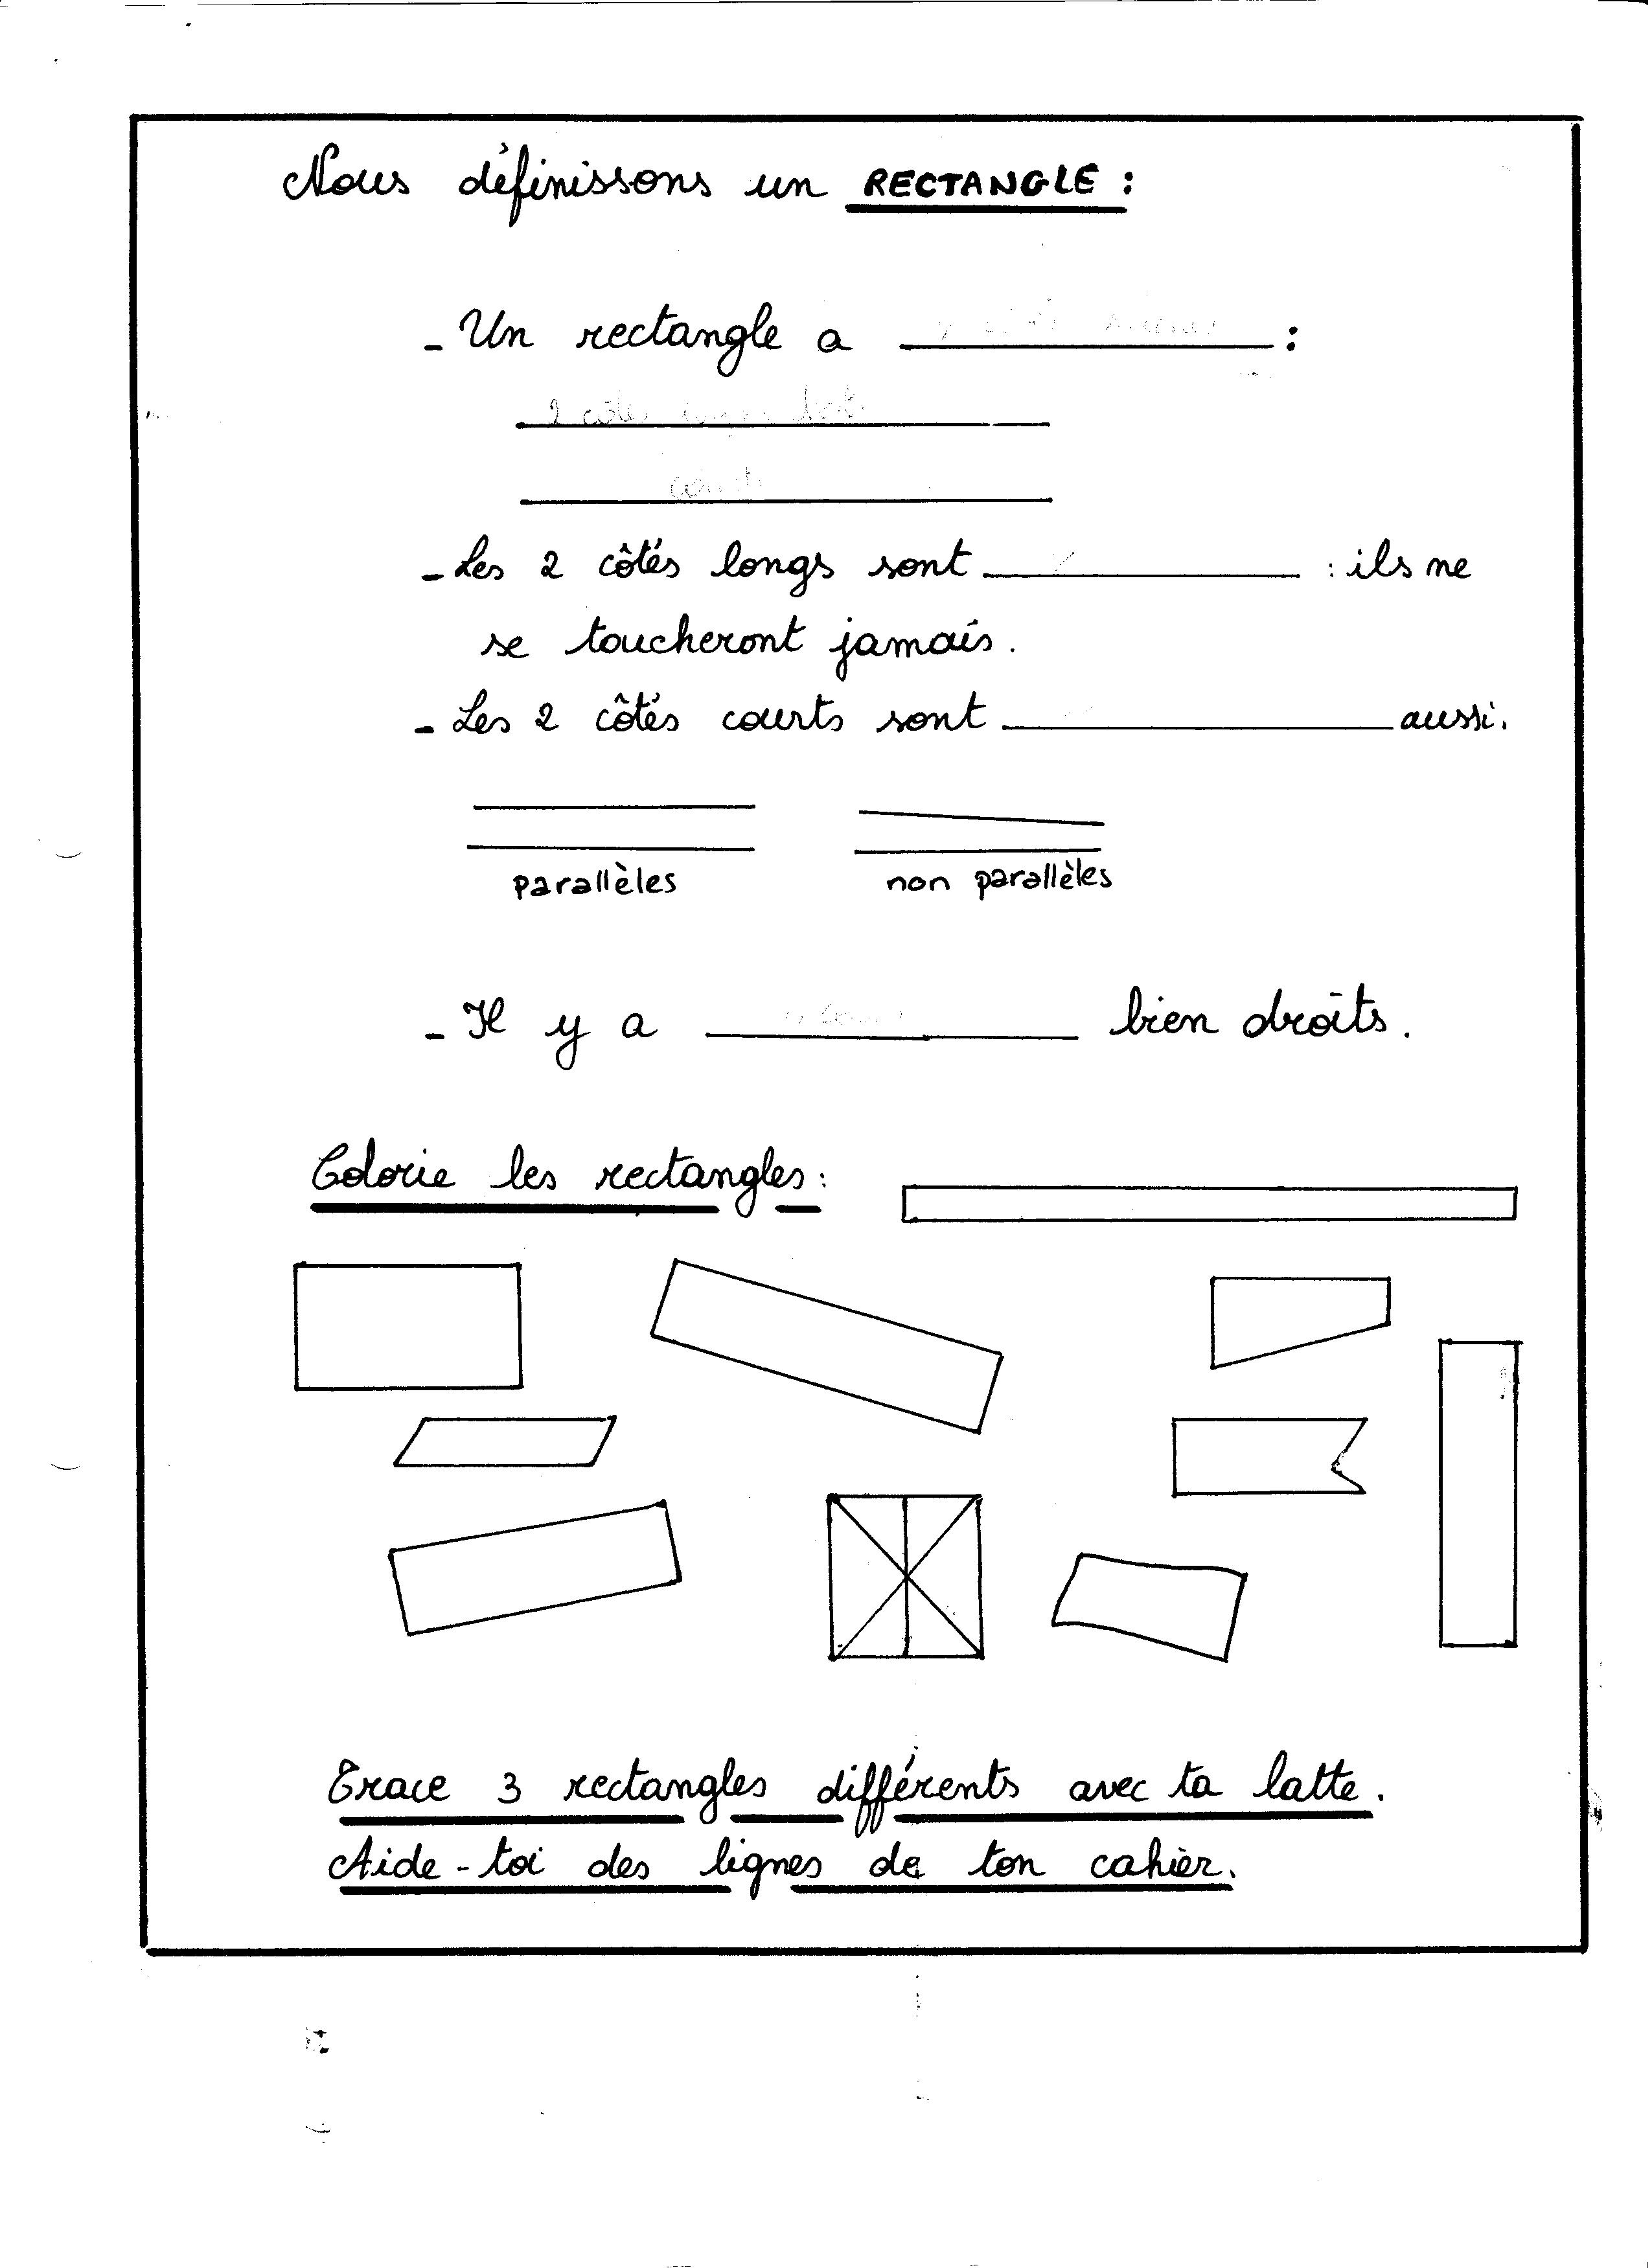 Nous définissons un RECTANGLE :
- Un rectangle a :
2 côtés
- Les 2 côtés longs sont : ils ne
se toucheront jamais.
- Les 2 côtés courts sont aussi.
parallèles non parallèles
- Il y a bien droits.
Colorie les rectangles :
Trace 3 rectangles différents avec ta latte.
Aide-toi des lignes de ton cahier.